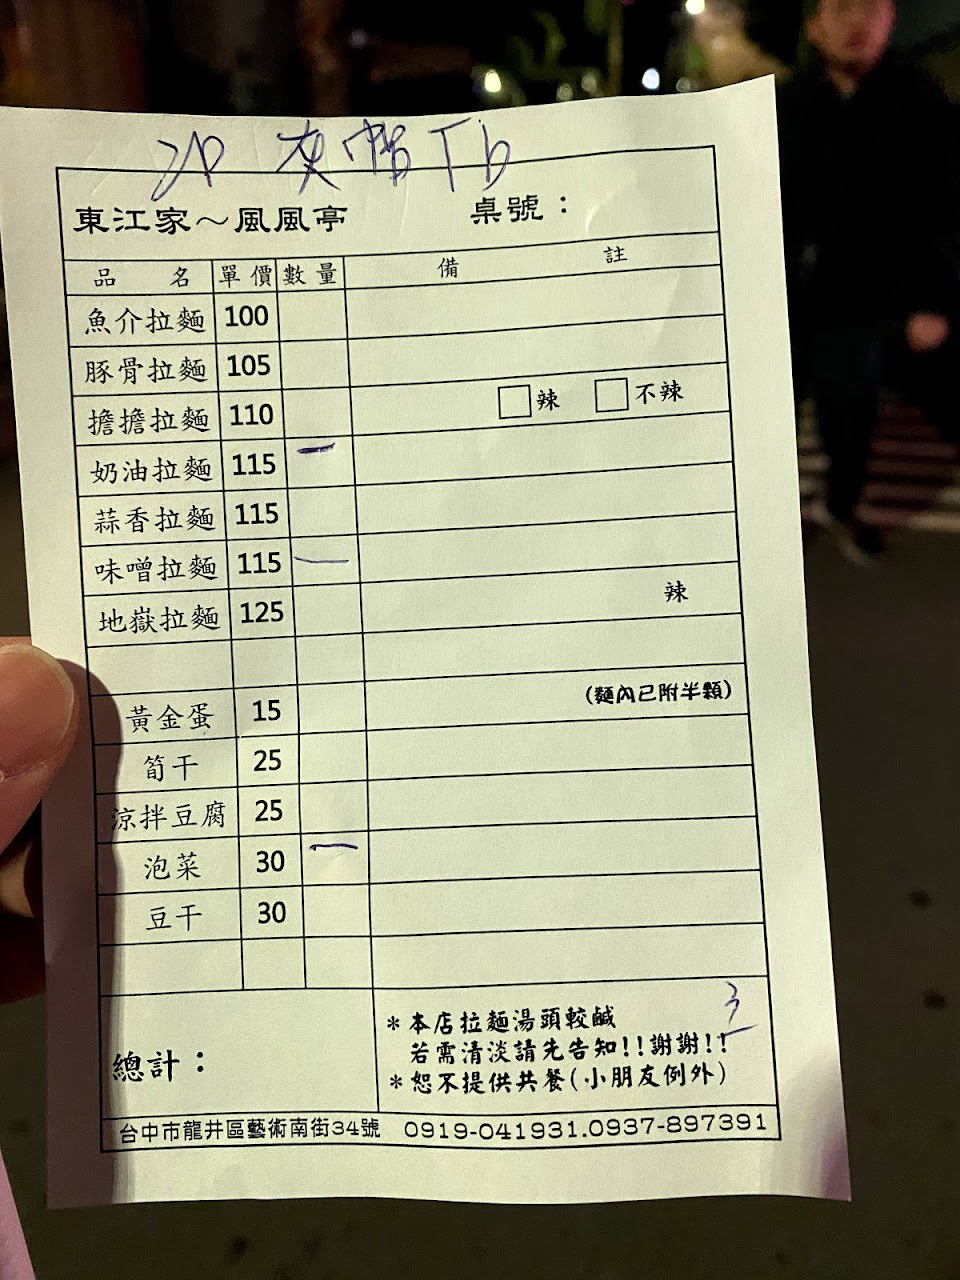 2P 灰帽T b
東江家～風風亭 桌號：
品名 單價 數量 備註
魚介拉麵 100
豚骨拉麵 105
擔擔拉麵 110 □辣 □不辣
奶油拉麵 115 一
蒜香拉麵 115
味噌拉麵 115 一
地嶽拉麵 125 辣
黃金蛋 15 (麵內已附半顆)
筍干 25
涼拌豆腐 25
泡菜 30 一
豆干 30
總計：
＊本店拉麵湯頭較鹹
若需清淡請先告知!!謝謝!!
＊恕不提供共餐(小朋友例外)
台中市龍井區藝術南街34號 0919-041931.0937-897391